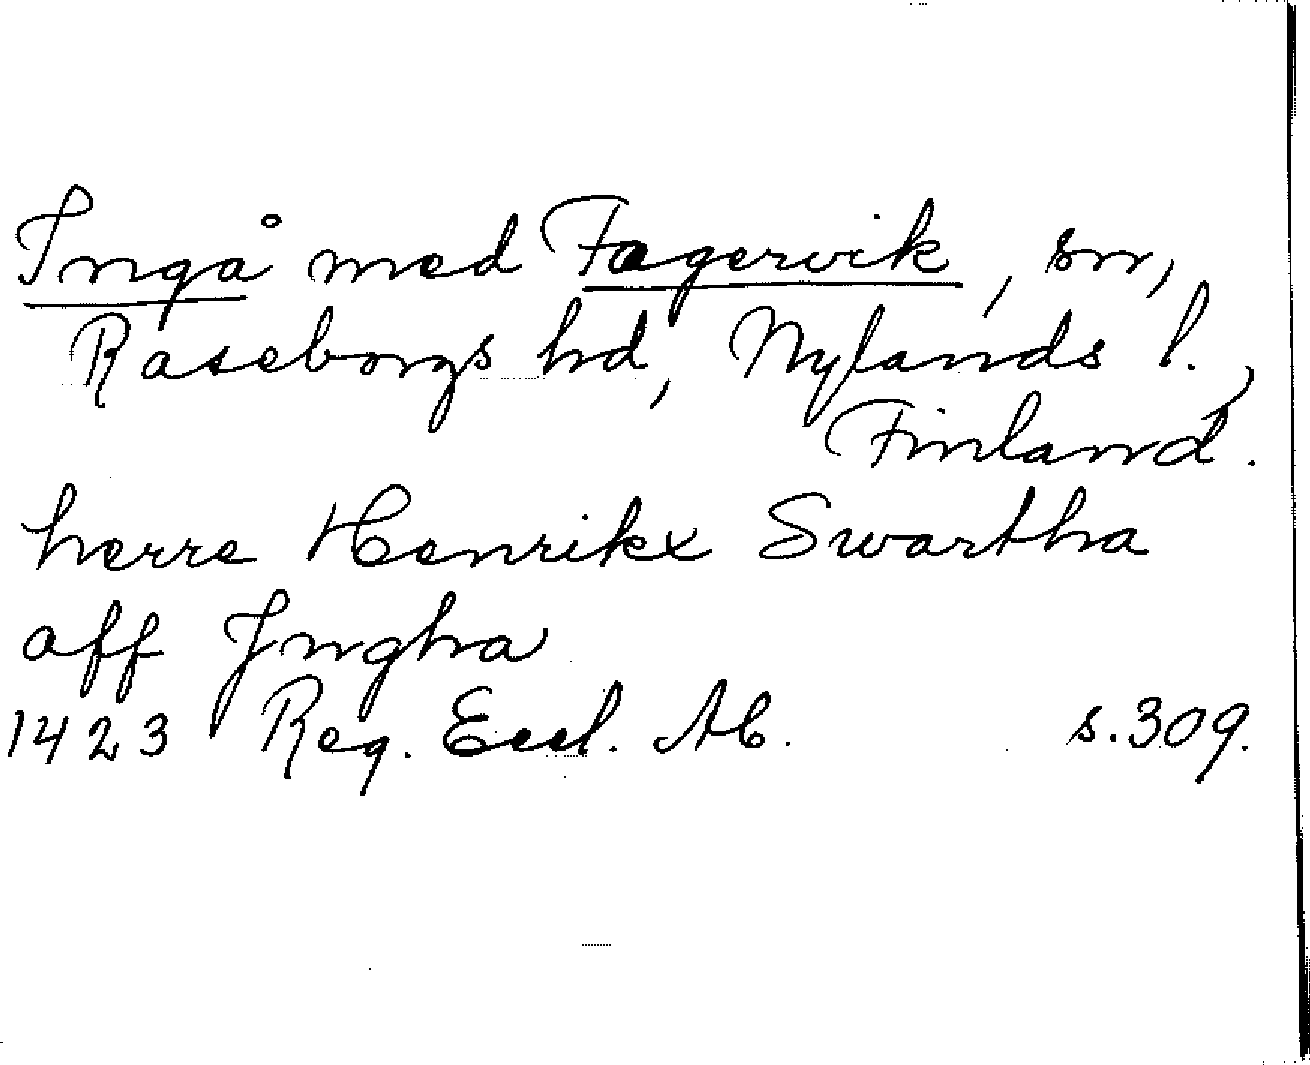 Ingå med Fagervik, sn,
Raseborgs hd, Nylands l.,
Finland.
herre Henrikx Swartha
aff Jngha
1423 Reg. Eccl. Ab. s.309.